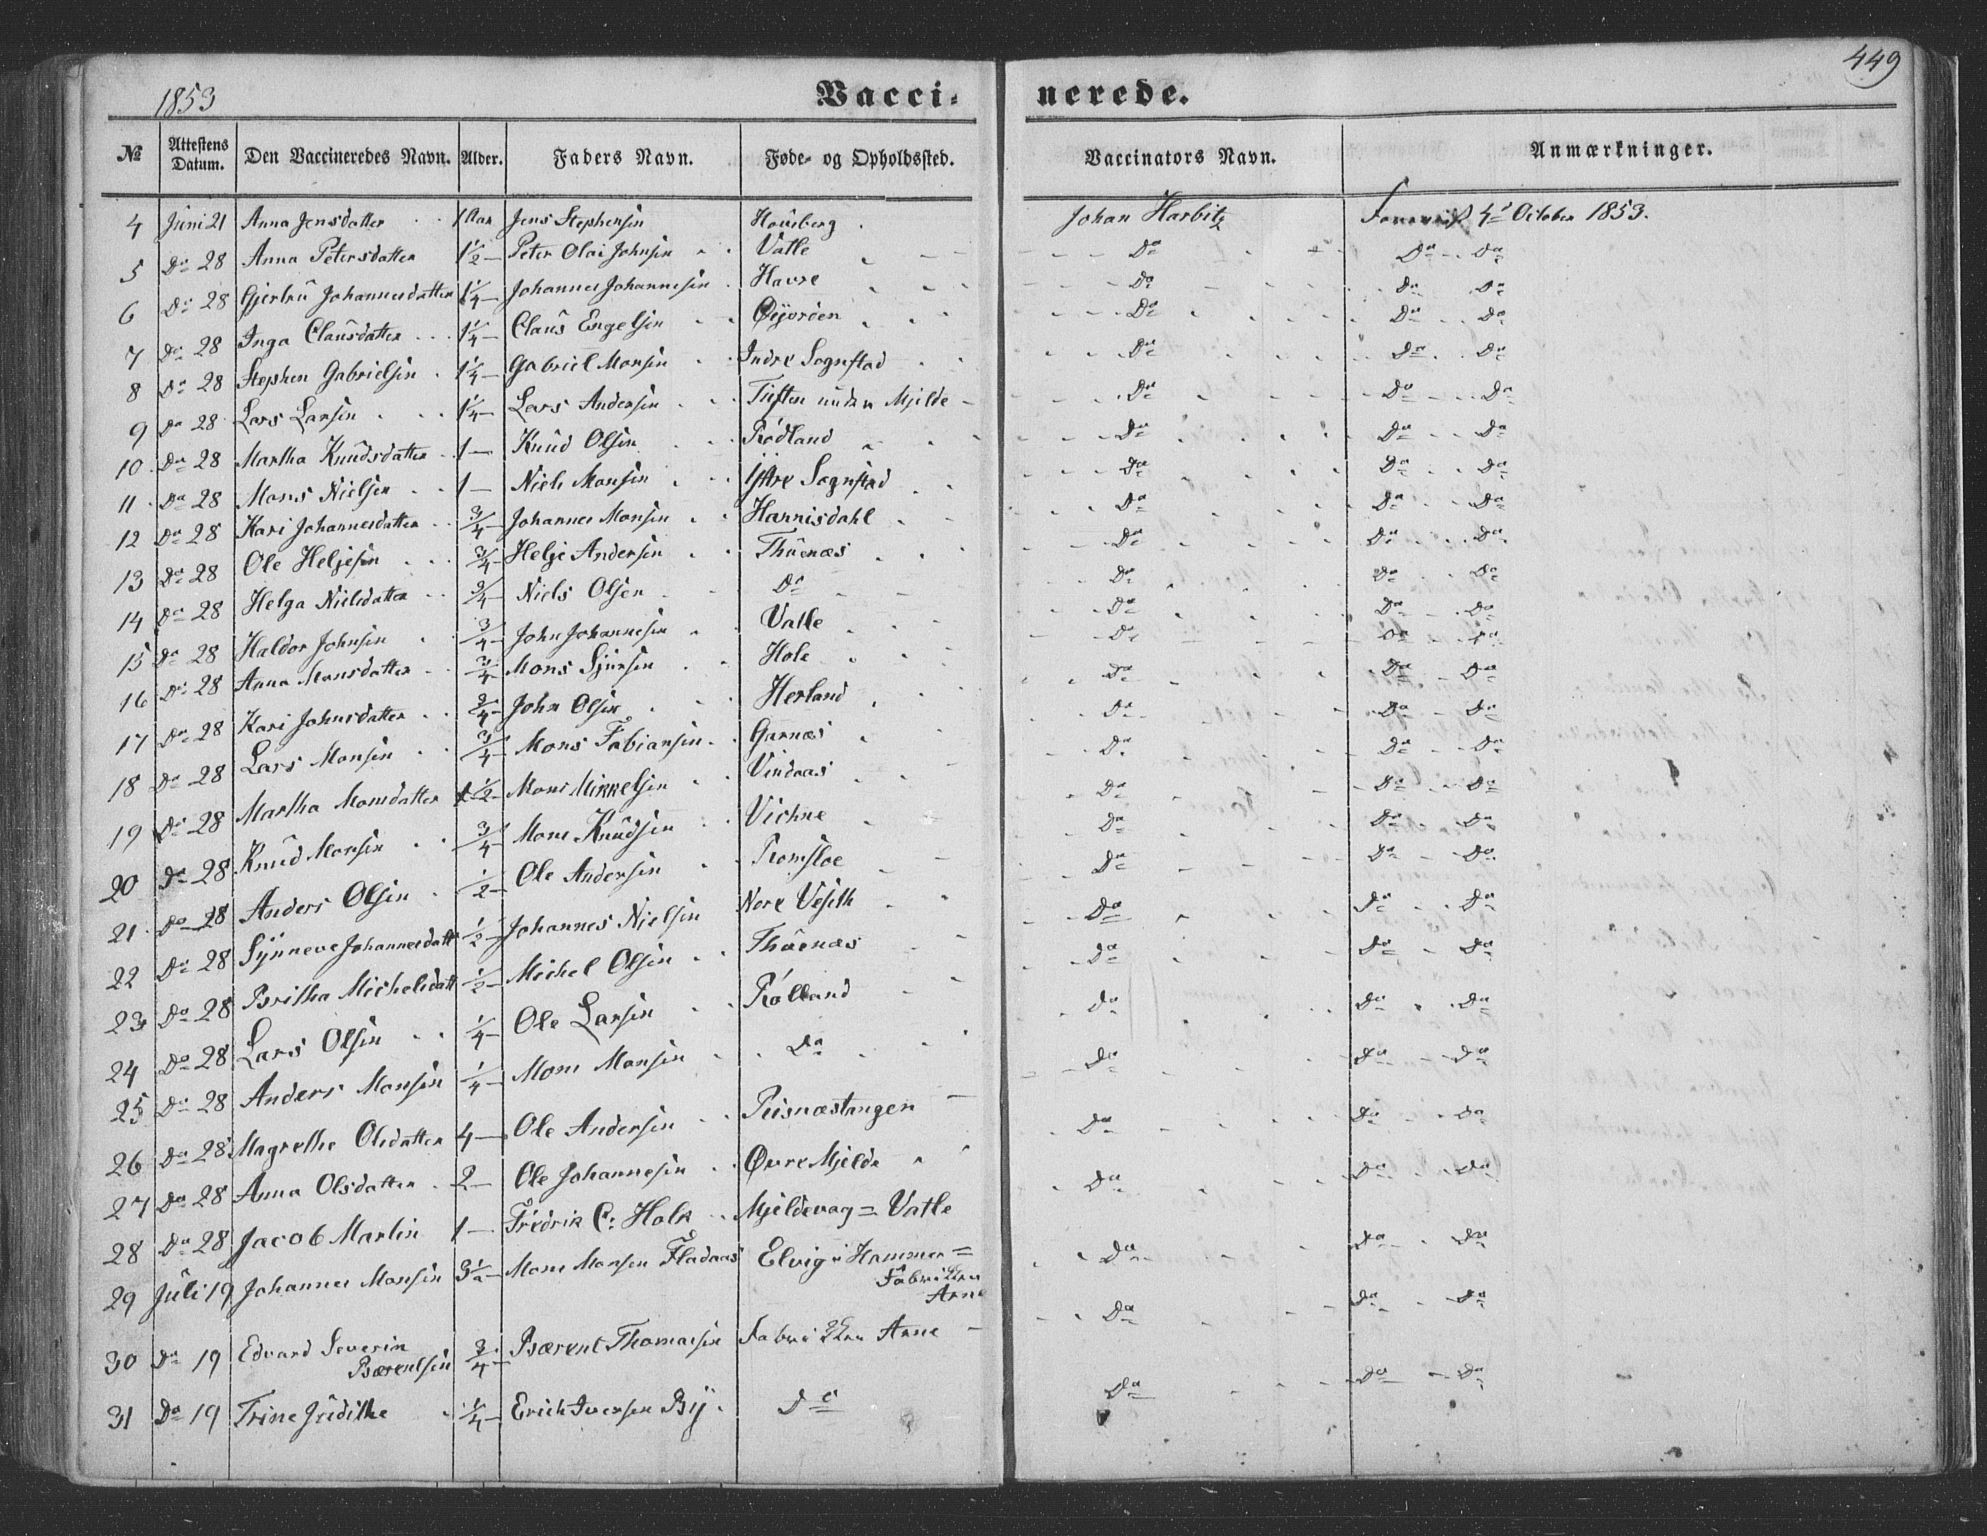 449
1853 Vacci- nerede.
№ Attestens Datum. Den Vaccineredes Navn. Alder. Faders Navn. Føde- og Opholdssted. Vaccinators Navn. Anmærkninger.
4 Juni 21 Anna Jensdatter 1 Aar Jens Stephensen Houberg Johan Harbitz 4de October 1853.
5 Do 28 Anna Petersdatter 1½ Peter Olai Johnsen Vatle Do Do Do
6 Do 28 Gjertru Johannesdatter 1¼ Johannes Johannesen Havre Do Do Do
7 Do 28 Inga Clausdatter 1¼ Claus Engelsen Øyjorden Do Do Do
8 Do 28 Stephen Gabrielsen 1¼ Gabriel Monsen Indre Sognstad Do Do Do
9 Do 28 Lars Larsen 1¼ Lars Andersen Tuften under Mjelde Do Do Do
10 Do 28 Martha Knudsdatter 1 Knud Olsen Rødland Do Do Do
11 Do 28 Mons Nielsen 1 Niels Monsen Ystre Sognstad Do Do Do
12 Do 28 Kari Johannesdatter ¾ Johannes Monsen Hannisdahl Do Do Do
13 Do 28 Ole Heljesen ¾ Helje Andersen Thuenæs Do Do Do
14 Do 28 Helga Nielsdatter ¾ Niels Olsen Do Do Do Do
15 Do 28 Haldor Johnsen ¾ John Johannesen Vatle Do Do Do
16 Do 28 Anna Monsdatter ¾ Mons Sjursen Hole Do Do Do
17 Do 28 Kari Johnsdatter ¾ John Olsen Herland Do Do Do
18 Do 28 Lars Monsen ¾ Mons Fabiansen Garnæs Do Do Do
19 Do 28 Martha Monsdatter ½ Mons Mikkelsen Vindaas Do Do Do
20 Do 28 Knud Monsen ¾ Mons Knudsen Vichne Do Do Do
21 Do 28 Anders Olsen ½ Ole Andersen Romsloe Do Do Do
22 Do 28 Synneve Johannesdatt ½ Johannes Nielsen Nore Do Do Do
23 Do 28 Britha Michelsdatt ½ Michel Olsen Thuenæs Do Do Do
24 Do 28 Lars Olsen ¼ Ole Larsen Rølland Do Do Do
25 Do 28 Anders Monsen ¼ Mons Monsen Do Do Do Do
26 Do 28 Magrethe Olsdatter 4 Ole Andersen Risnæstangen Do Do Do
27 Do 28 Anna Olsdatter 2 Ole Johannesen Øvre Mjelde Do Do Do
28 Do 28 Jacob Martin 1 Fredrik C: Holk Mjeldevag = Vatle Do Do Do
29 Juli 19 Johannes Monsen 3½ Mons Monsen Fladaas Elvig i Hammer=
Fabrikken
Arne Do Do Do
30 Do 19 Edvard Severin
Bærentsen ¾ Bærent Thomasen Fabrikken Arne Do Do Do
31 Do 19 Trine Judithe ¼ Erich Iversen By Do